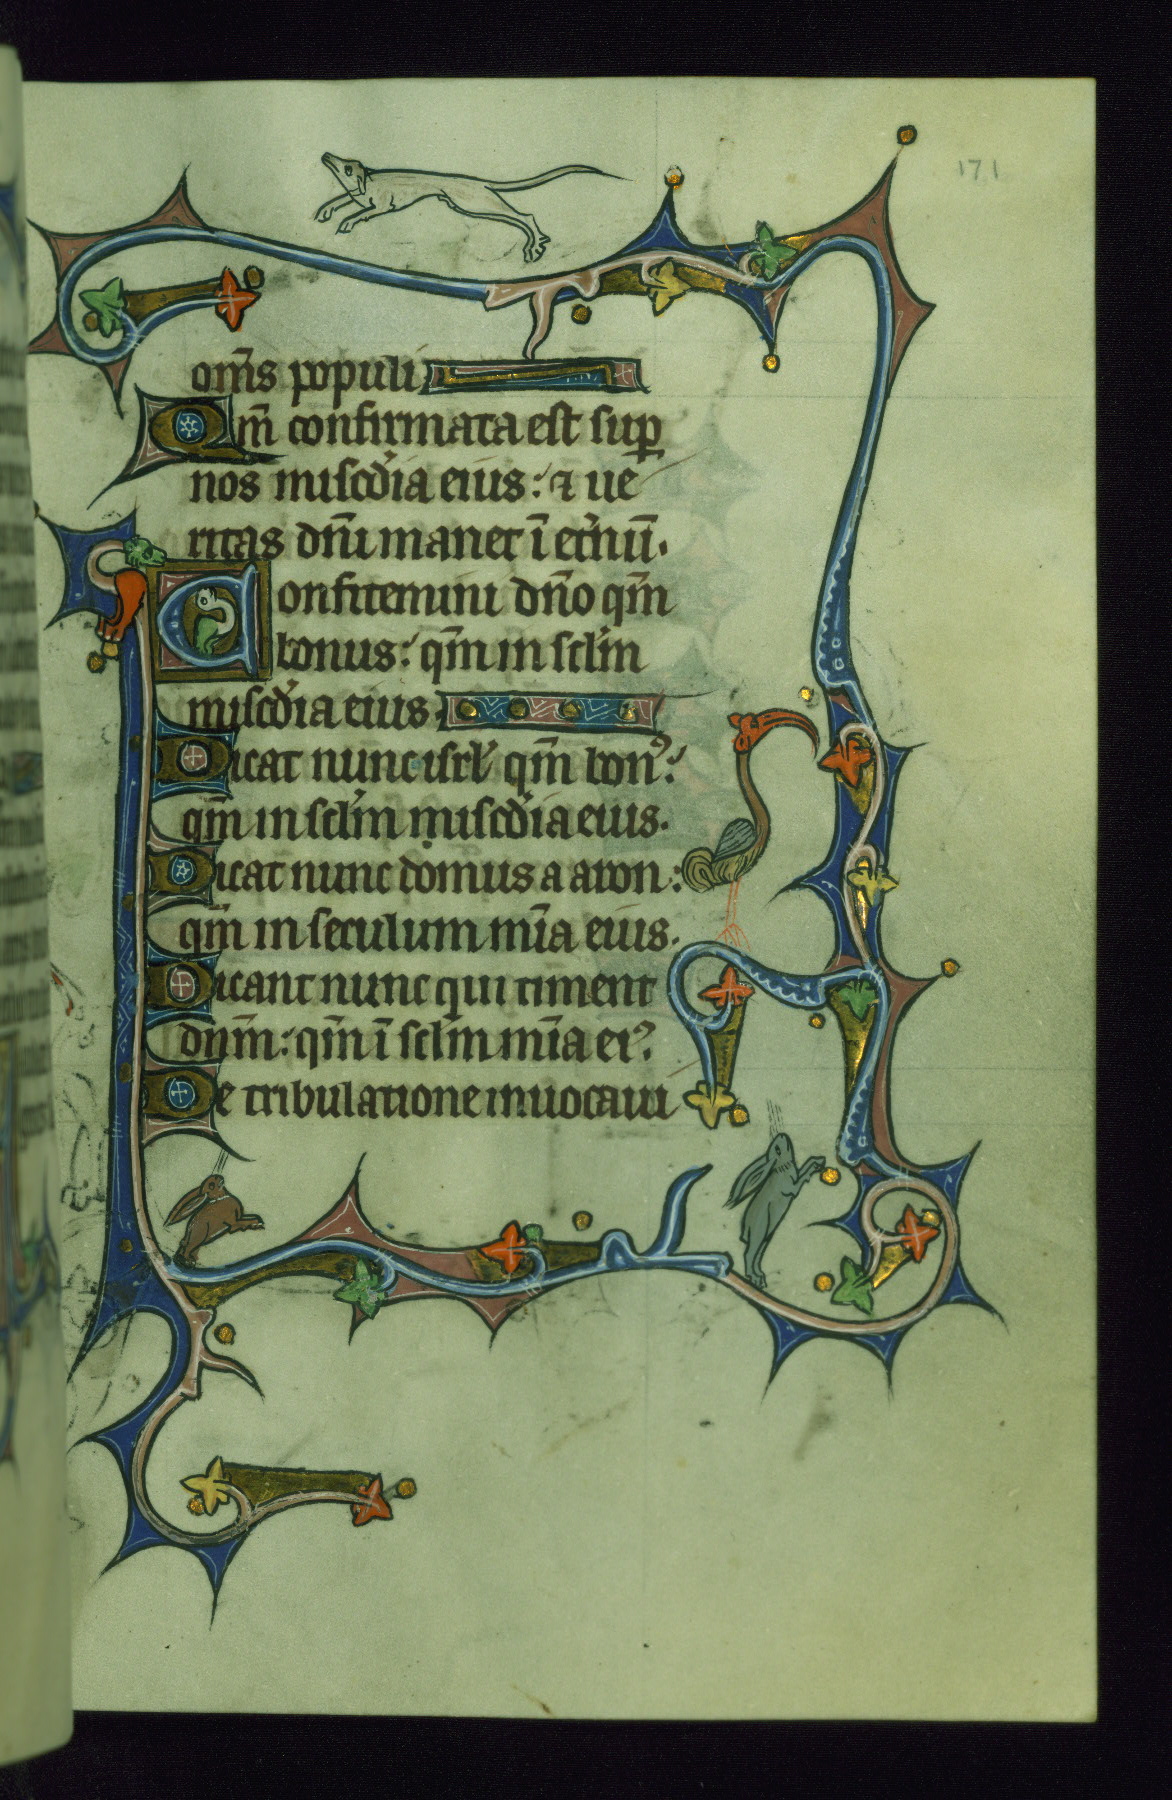 171
om̄s populi
Qm̄ confirmata est sup
nos misc̄dia eius: ⁊ ue
ritas dn̄i manet ī et̄nū.
Confitemini dn̄o qm̄
bonus: qm̄ in scl̄m
misc̄dia eius.
Dicat nunc isrl̄ qm̄ bonꝰ:
qm̄ in scl̄m misc̄dia eius.
Dicat nunc domus aaron:
qm̄ in seculum mīa eius.
Dicant nunc qui timent
dn̄m: qm̄ ī scl̄m mīa eiꝰ.
De tribulatione inuocaui